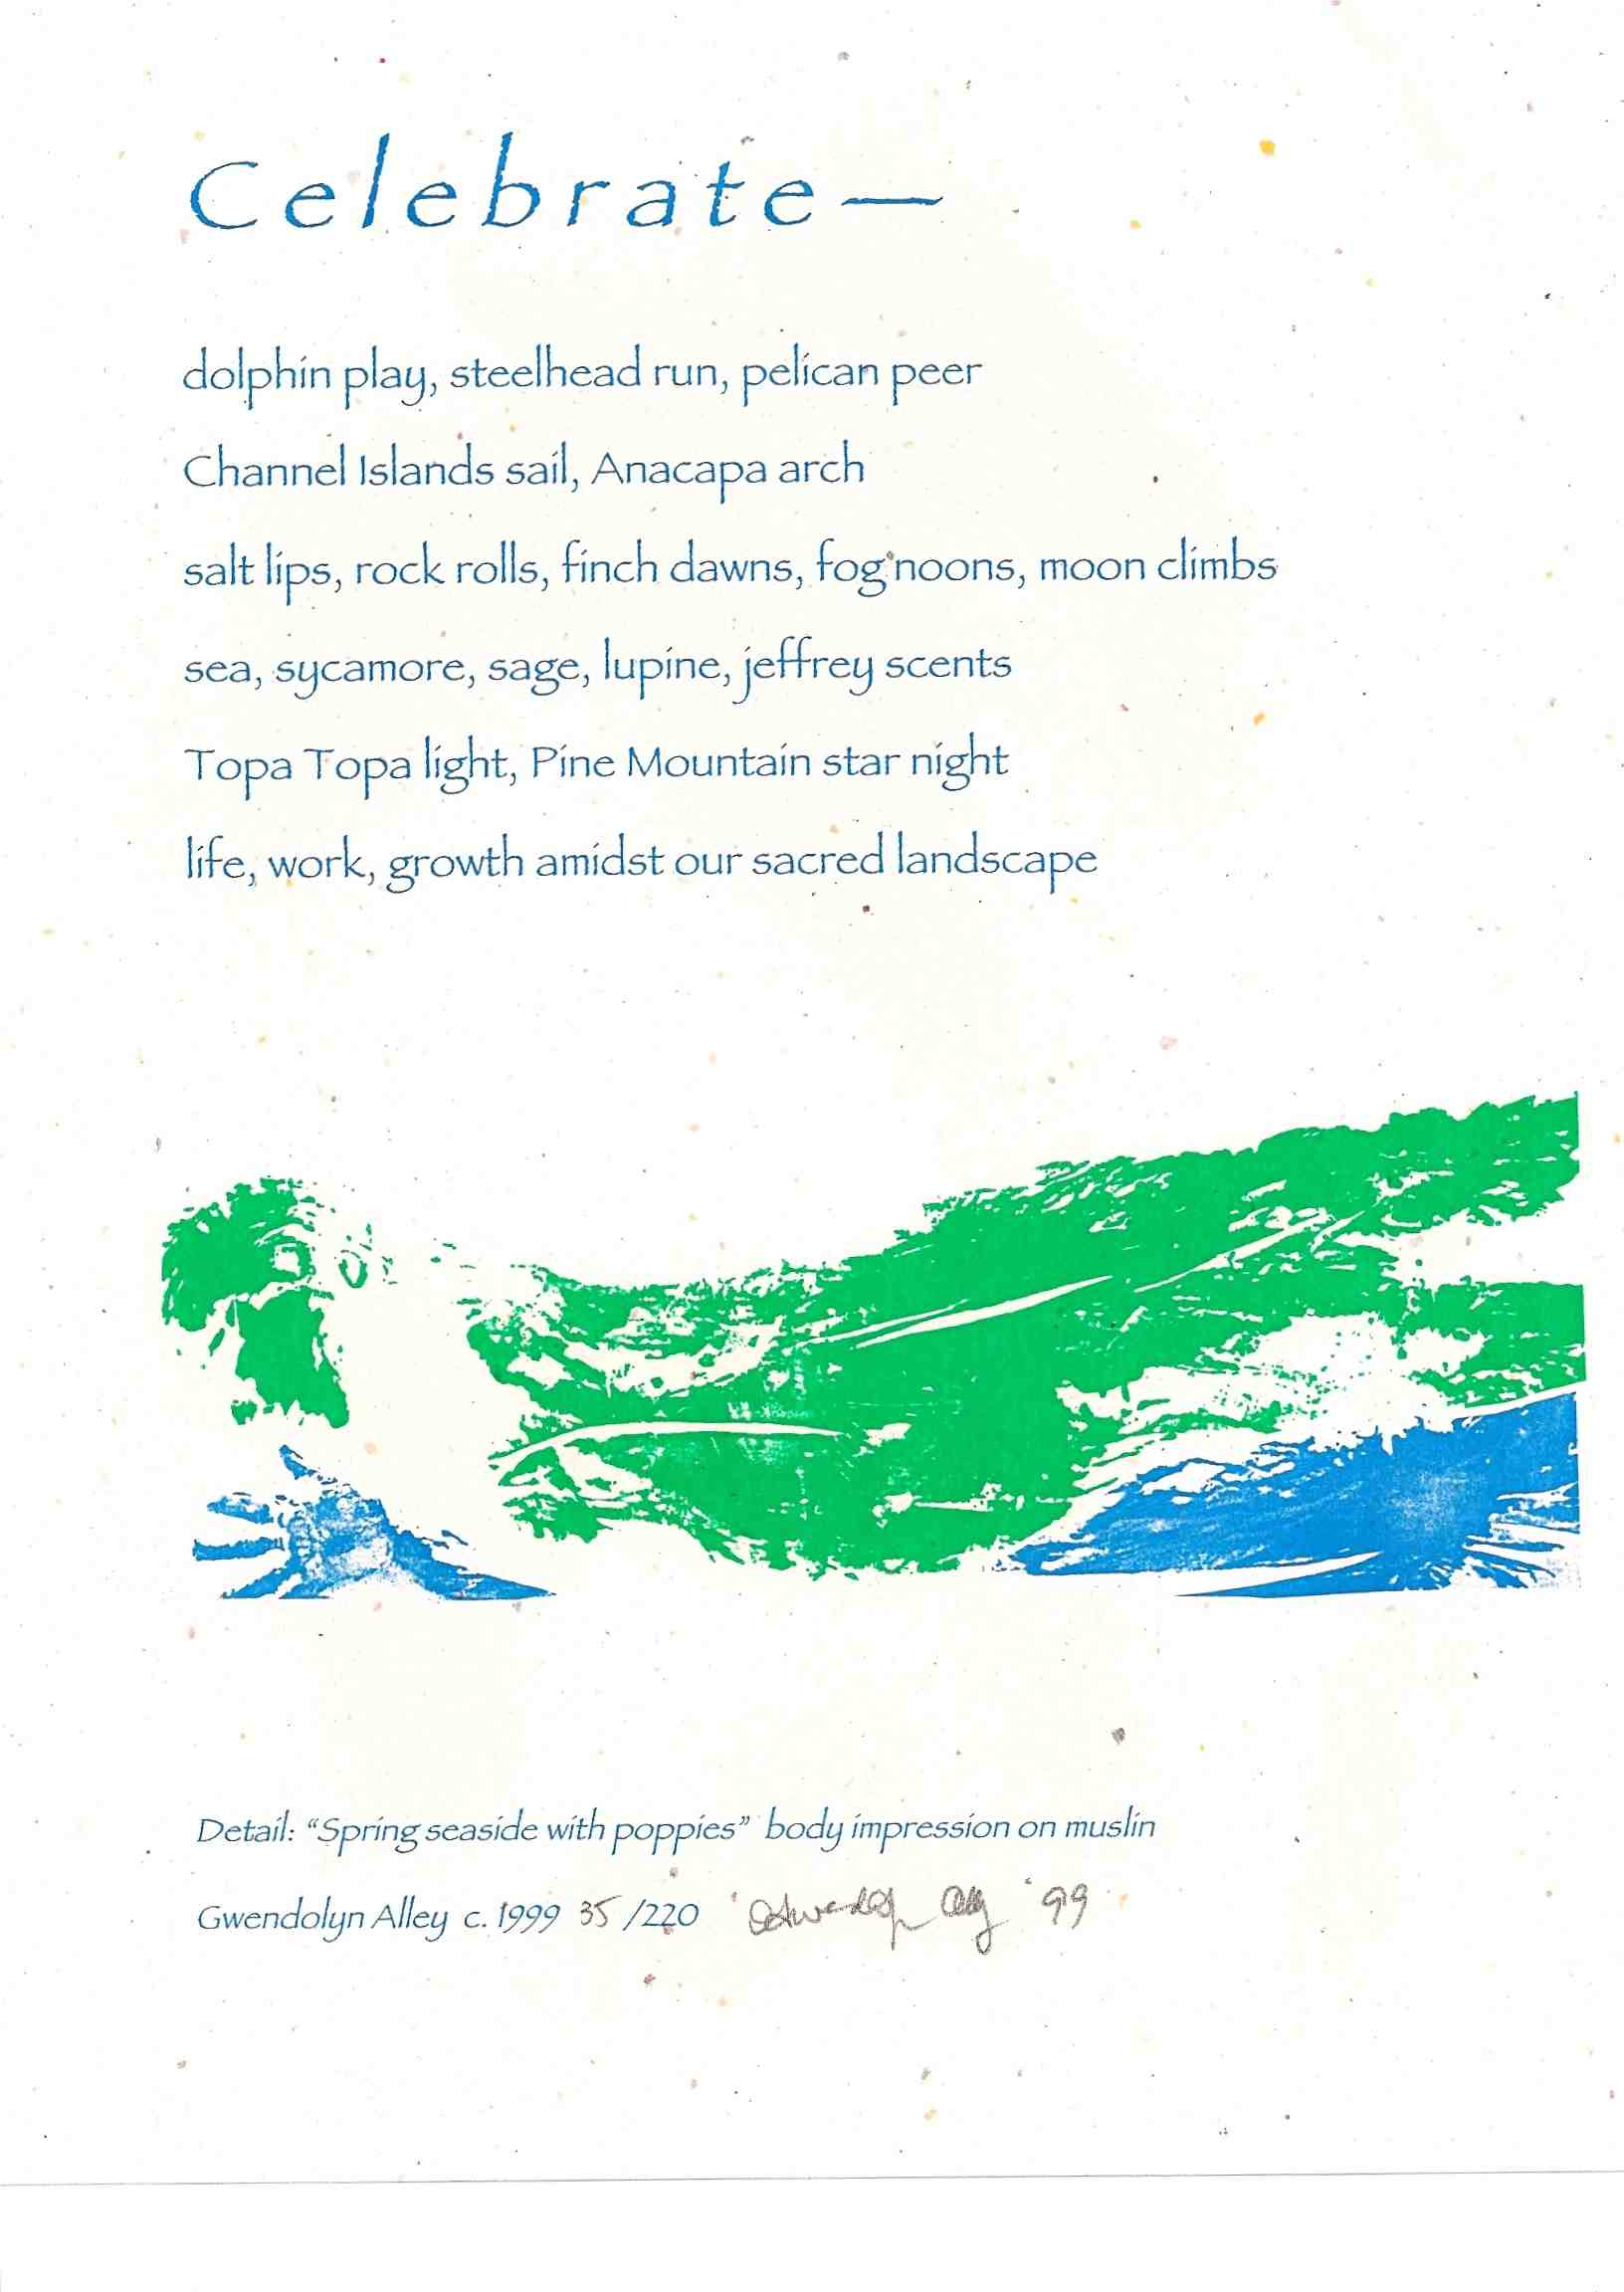 Celebrate—
dolphin play, steelhead run, pelican peer
Channel Islands sail, Anacapa arch
salt lips, rock rolls, finch dawns, fog noons, moon climbs
sea, sycamore, sage, lupine, jeffrey scents
Topa Topa light, Pine Mountain star night
life, work, growth amidst our sacred landscape
Detail: “Spring seaside with poppies” body impression on muslin
Gwendolyn Alley c. 1999 35/220 '99